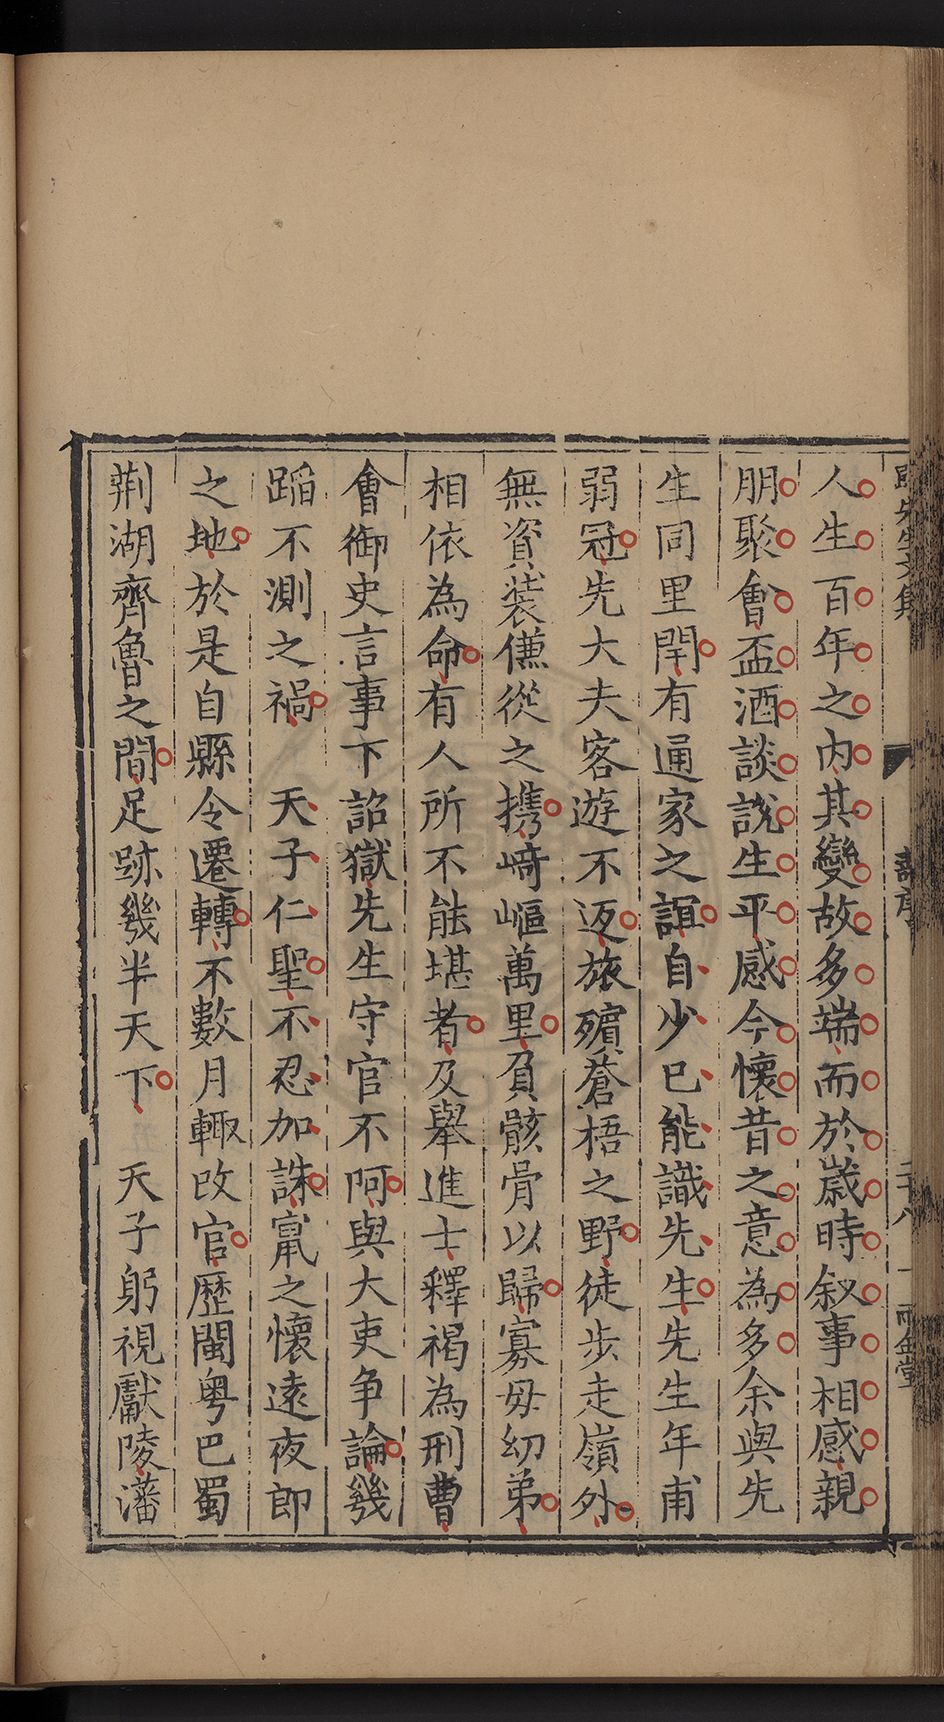 人生百年之內其變故多端而於歲時叙事相感親
朋聚會盃酒談說生平感今懷昔之意為多余與先
生同里閈有通家之誼自少已能識先生先生年甫
弱冠先大夫客遊不返旅殯蒼梧之野徒步走嶺外
無資裝傔從之携﨑嶇萬里負骸骨以歸寡母幼弟
相依為命有人所不能堪者及舉進士釋褐為刑曹
會御史言事下詔獄先生守官不阿與大吏争論幾
蹈不測之禍 天子仁聖不忍加誅竄之懷遠夜郎
之地於是自縣令遷轉不數月輙改官歷閩粤巴蜀
荆湖齊魯之間足跡幾半天下 天子躬視獻陵瀋